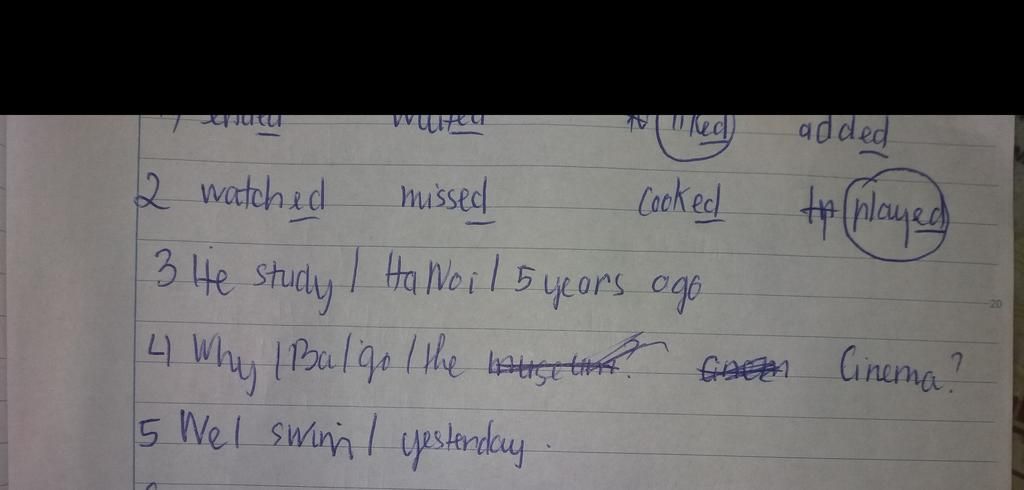 liked added
2 watched missed cooked played
3 He study / Ha Noi / 5 years ago
4) Why / Ba / go / the Cinema?
5 We / swim / yestenday.
20